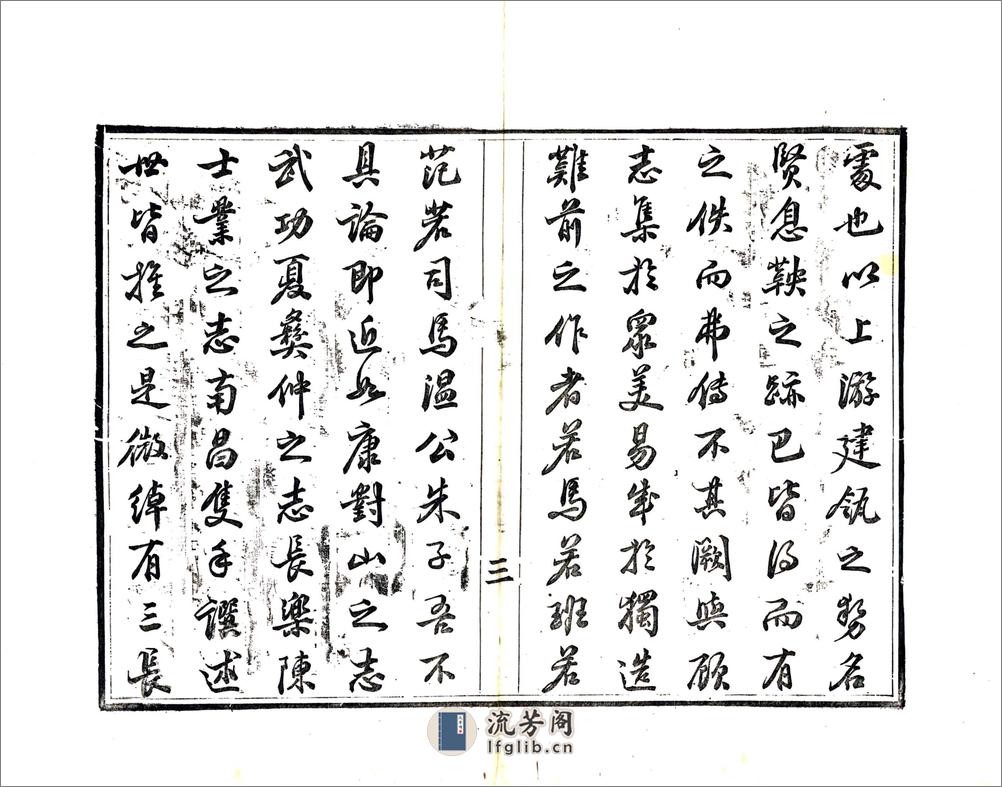 處也以上游建瓴之勢名
賢息鞅之跡已皆得而有
之佚而弗傳不其闕與顧
志集於眾美易成於獨造
難前之作者若馬若班若
三
范若司馬溫公朱子吾不
具論即近如康對山之志
武功夏彝仲之志長樂陳
士業之志南昌隻手譔述
世皆推之是微綽有三長
流芳阁
lfglib.cn